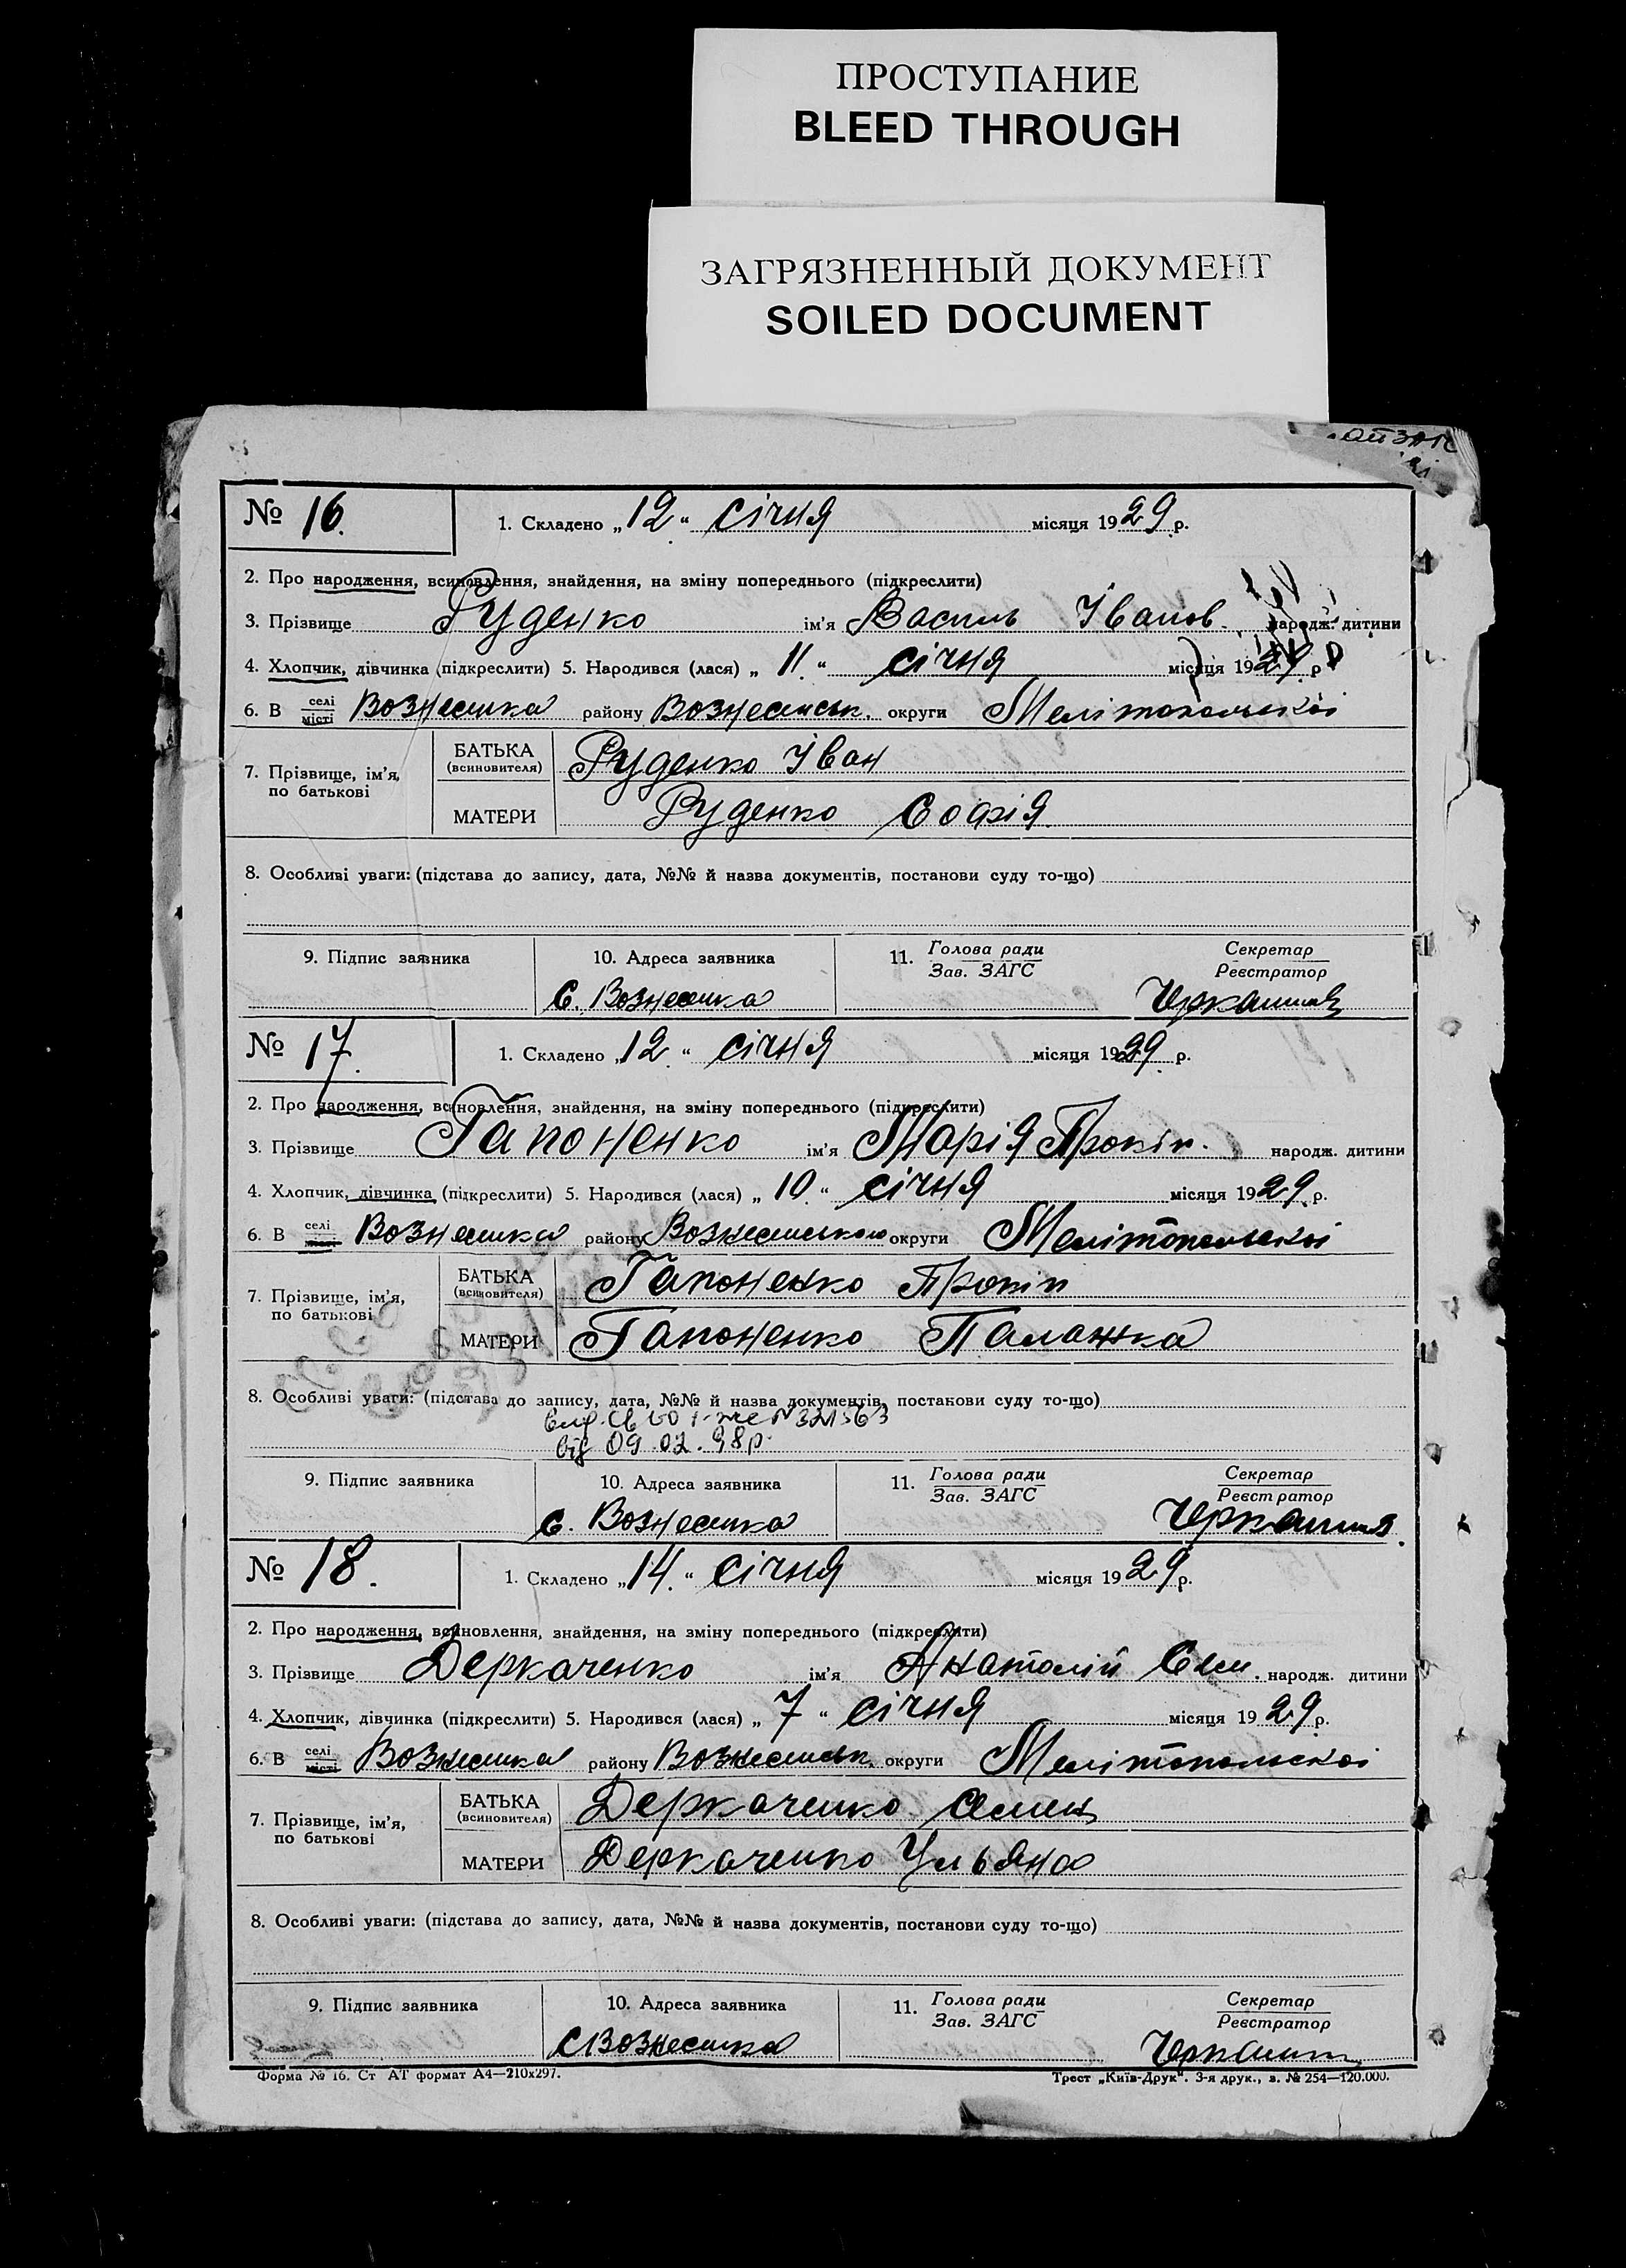 ПРОСТУПАНИЕ
BLEED THROUGH
ЗАГРЯЗНЕННЫЙ ДОКУМЕНТ
SOILED DOCUMENT
№ 16. 1. Складено „12.“ січня місяця 1929 р.
2. Про народження, всиновлення, знайдення, на зміну попереднього (підкреслити)
3. Прізвище Руденко ім'я Василь Іванов. народж. дитини
4. Хлопчик, дівчинка (підкреслити) 5. Народився (лася) „11.“ січня місяця 1929. р.
6. В селі місті Вознесенка району Вознесенськ. округи Мелітопольської
7. Прізвище, ім'я, по батькові БАТЬКА (всиновителя) Руденко Іван
МАТЕРИ Руденко Софія.
8. Особливі уваги: (підстава до запису, дата, №№ й назва документів, постанови суду то-що)
9. Підпис заявника 10. Адреса заявника 11. Голова ради Зав. ЗАГС Секретар Реєстратор
С. Вознесенка
№ 17. 1. Складено „12.“ січня місяця 1929 р.
2. Про народження, всиновлення, знайдення, на зміну попереднього (підкреслити)
3. Прізвище Гапоненко ім'я Марія Прокіп. народж. дитини
4. Хлопчик, дівчинка (підкреслити) 5. Народився (лася) „10.“ січня місяця 1929. р.
6. В селі Вознесенка району Вознесенського округи Мелітопольської
7. Прізвище, ім'я, по батькові БАТЬКА (всиновителя) Гапоненко Прокіп
МАТЕРИ Гапоненко Палажка
8. Особливі уваги: (підстава до запису, дата, №№ й назва документів, постанови суду то-що)
від 09.02.98р.
9. Підпис заявника 10. Адреса заявника 11. Голова ради Зав. ЗАГС Секретар Реєстратор
С. Вознесенка
№ 18. 1. Складено „14.“ січня місяця 1929 р.
2. Про народження, всиновлення, знайдення, на зміну попереднього (підкреслити)
3. Прізвище Деркаченко ім'я Анатолій Сем. народж. дитини
4. Хлопчик, дівчинка (підкреслити) 5. Народився (лася) „7“ січня місяця 1929. р.
6. В селі місті Вознесенка району Вознесенськ. округи Мелітопольської
7. Прізвище, ім'я, по батькові БАТЬКА (всиновителя) Деркаченко Семен
МАТЕРИ Деркаченко Ульяна
8. Особливі уваги: (підстава до запису, дата, №№ й назва документів, постанови суду то-що)
9. Підпис заявника 10. Адреса заявника 11. Голова ради Зав. ЗАГС Секретар Реєстратор
С Вознесенка
Форма № 16. Ст АТ формат А4—210х297. Трест „Київ-Друк“. 3-я друк., з. № 254—120.000.